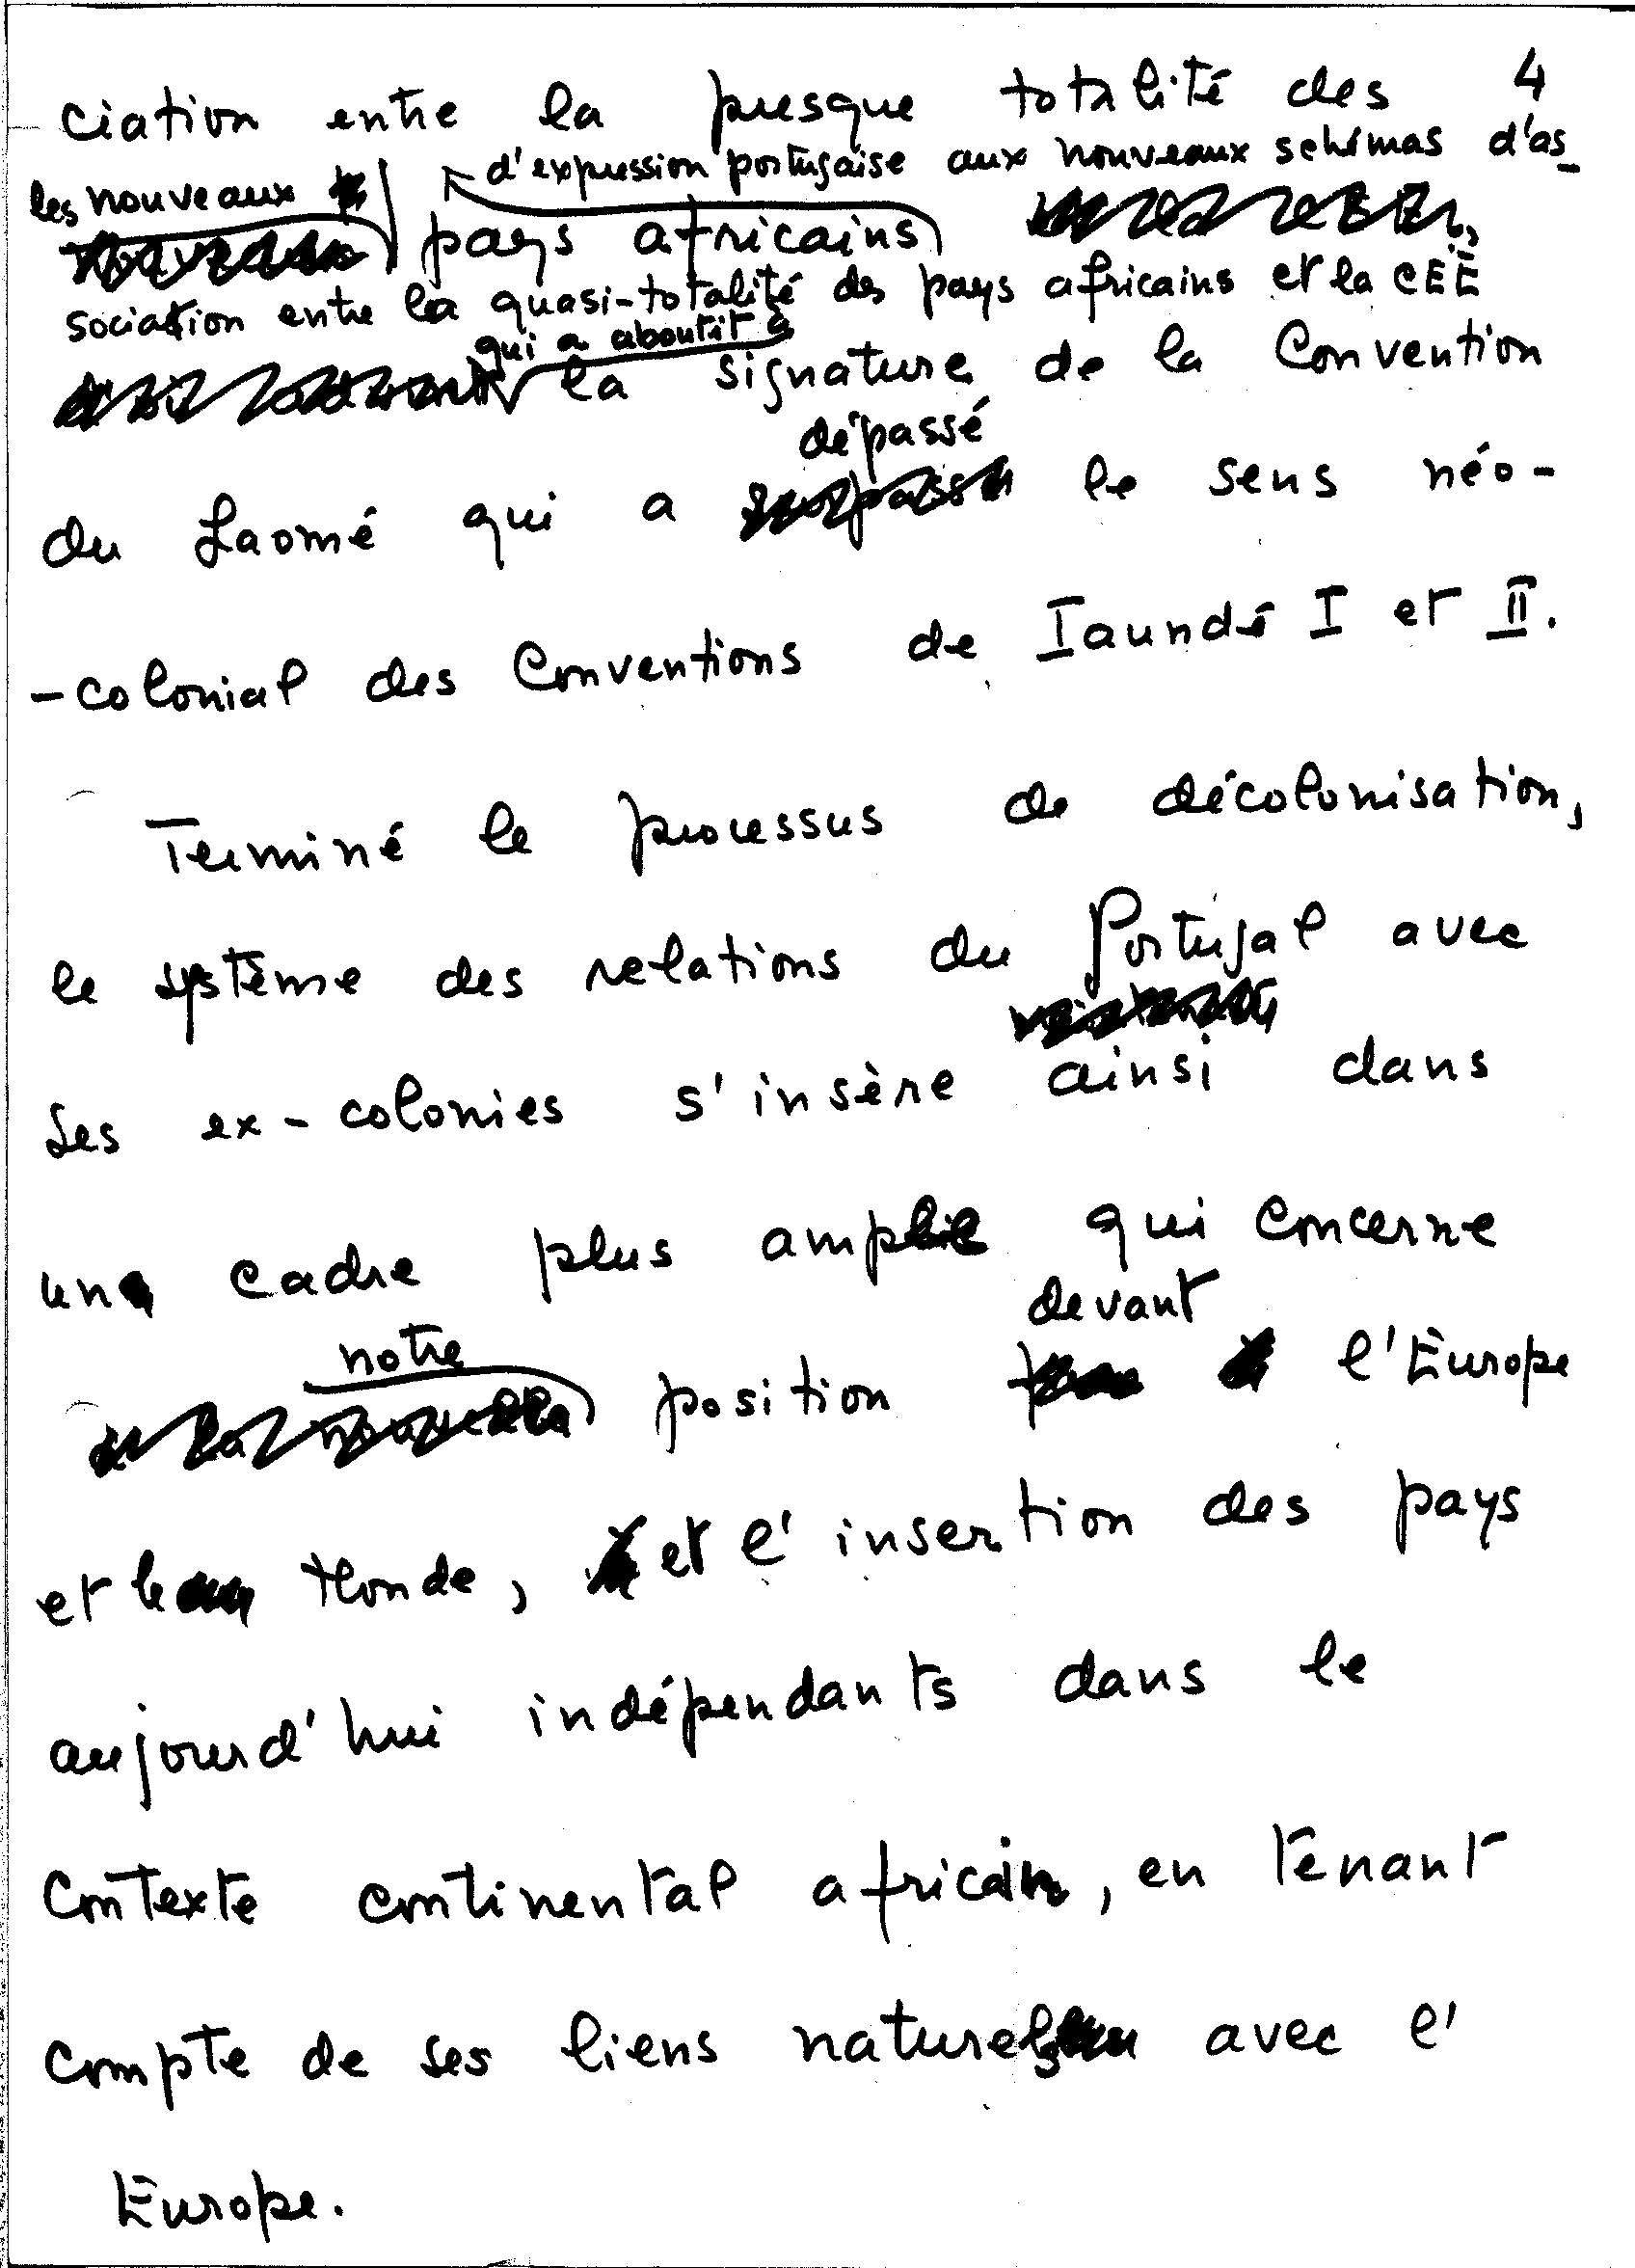 4
ciation entre la presque totalité des
d'expression portugaise aux nouveaux schémas d'as-
les nouveaux
pays africains
sociation entre la quasi-totalité des pays africains et la CEE
qui a aboutit à
la signature de la Convention
dépassé
du Laomé qui a le sens néo-
-colonial des Conventions de Iaundé I et II.
Terminé le processus de décolonisation,
le système des relations du Portugal avec
ses ex-colonies s'insère ainsi dans
un cadre plus ample qui concerne
devant
notre
position l'Europe
et le Monde, et l'insertion des pays
aujourd'hui indépendants dans le
contexte continental africain, en tenant
compte de ses liens naturels avec l'
Europe.